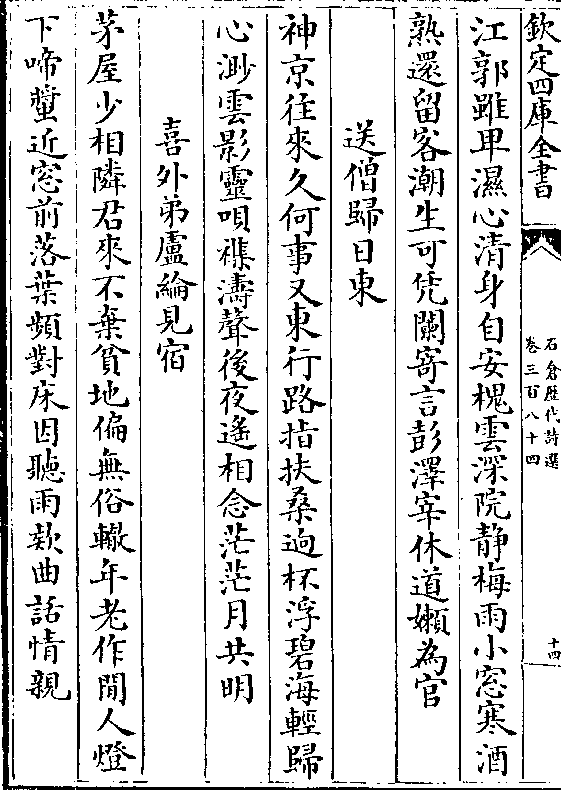 欽定四庫全書
石倉歷代詩選
卷三百八十四
十四
江郭雖卑濕心清身自安槐雲深院静梅雨小窓寒酒
熟還留客潮生可凭闌寄言彭澤宰休道嬾為官
送僧歸日東
神京往來久何事又東行路指扶桑逈杯浮碧海輕歸
心渺雲影靈唄襍濤聲後夜遙相念茫茫月共明
喜外弟盧綸見宿
茅屋少相隣君來不棄貧地偏無俗轍年老作閒人燈
下啼螿近窓前落葉頻對床因聽雨欵曲話情親